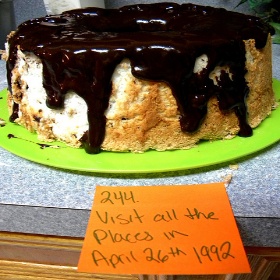 244.
Visit all the
Places in
April 26th 1992